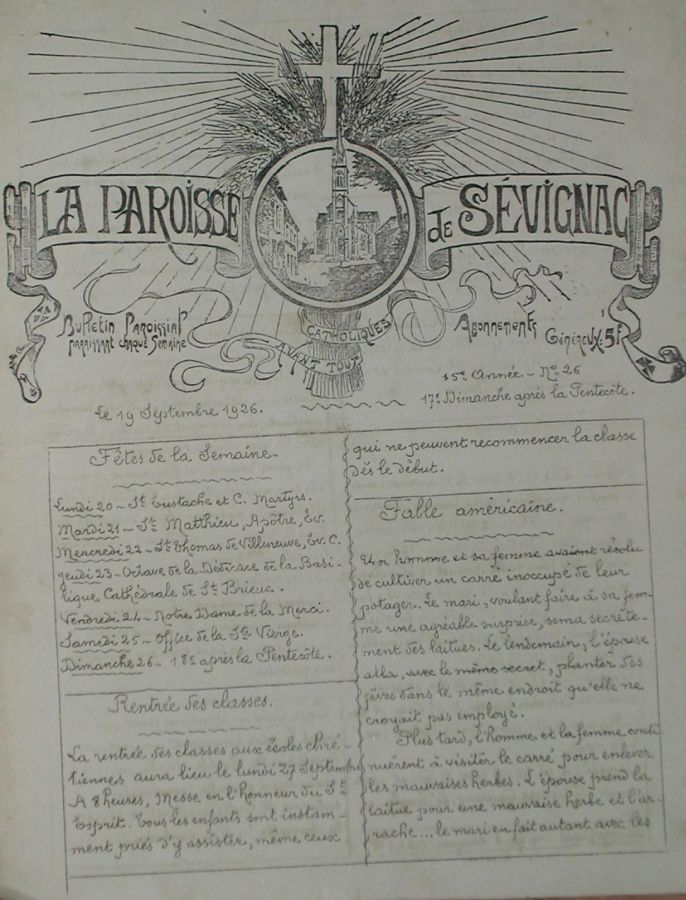 LA PAROISSE
de SÉVIGNAC
Bulletin Paroissial
paraissant chaque Semaine
CATHOLIQUES
AVANT TOUT
Abonnements
Généreux: 5F
15e Année. - No. 26
17e Dimanche après la Pentecôte.
Le 19 Septembre 1926.
Fêtes de la Semaine.
Lundi 20 - St Eustache et C. Martyrs.
Mardi 21 - St Matthieu, Apôtre, Ev.
Mercredi 22 - St Thomas de Villeneuve, Ev. C.
Jeudi 23 - Octave de la Dédicace de la Basi-
lique Cathédrale de St Brieuc.
Vendredi 24 - Notre Dame de la Merci.
Samedi 25 - Office de la Ste Vierge.
Dimanche 26 - 18e après la Pentecôte.
Rentrée des classes.
La rentrée des classes aux écoles chré-
tiennes aura lieu le lundi 27 Septembre
A 8 heures, Messe en l'honneur du St
Esprit. Tous les enfants sont instam-
ment priés d'y assister, même ceux
qui ne peuvent recommencer la classe
dès le début.
Fable américaine.
Un homme et sa femme avaient résolu
de cultiver un carré inoccupé de leur
potager. Le mari, voulant faire à sa fem-
me une agréable surprise, sema secrète-
ment des laitues. Le lendemain, l'épouse
alla, avec le même secret, planter des
fèves dans le même endroit qu'elle ne
croyait pas employé.
Plus tard, l'homme et la femme conti
nuèrent à visiter le carré pour enlever
les mauvaises herbes. L'épouse prend la
laitue pour une mauvaise herbe et l'ar-
rache... le mari en fait autant avec les